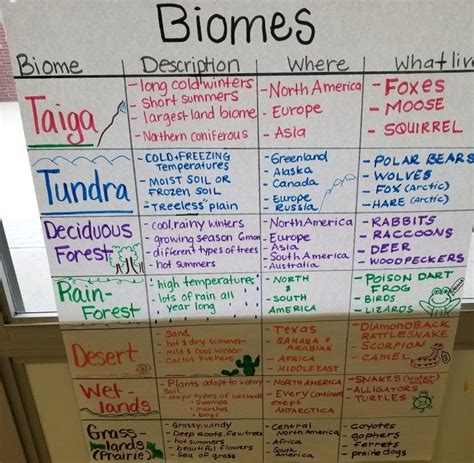 Biomes
Biome Description Where What liv
Taiga
- long cold winters
- Short summers
- largest land biome
- Northern coniferous
- North America
- Europe
- Asia
- FOXES
- MOOSE
- SQUIRREL
Tundra
- COLD + FREEZING
temperatures
- MOIST SOIL OR
FROZEN SOIL
- "Treeless" plain
- Greenland
- Alaska
- Canada
- Europe
Russia
- POLAR BEARS
- WOLVES
- FOX (Arctic)
- HARE (Arctic)
Deciduous
Forest
- cool, rainy winters
- growing season 6mon
- different types of trees
- hot summers
- North America
- Europe
- Asia
- South America
- Australia
- RABBITS
- RACCOONS
- DEER
- WOODPECKERS
Rain-
Forest
- high temperatures
- lots of rain all
year long
- NORTH
&
SOUTH
AMERICA
- POISON DART
FROG
- BIRDS
- LIZARDS
Desert
- Sand
- hot & dry summer
- Mild & cool winter
- Cactus live here
- Texas
- SAHARA &
ARABIAN
- AFRICA
- MIDDLE EAST
- DIAMONDBACK
RATTLESNAKE
- SCORPION
- CAMEL
Wet-
lands
- Plants adapt to watery
soil
- Major types of wetlands
- Swamps
- marshes
- bogs
- NORTH AMERICA
- Every continent
exept
ANTARCTICA
- SNAKES
- ALLIGATORS
- TURTLES
Grass-
lands
(Prairie)
- Grassy, windy
- Deep roots, few trees
- hot summers
- beautiful flowers
- Sea of grass
- Central
North America
- Africa
- South
America
- Coyotes
- gophers
- ferrets
- prairie dog